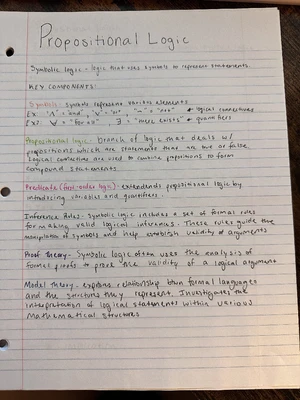 Propositional Logic
Symbolic logic - logic that uses symbols to represent statements.
KEY COMPONENTS:
Symbols - symbols represent various elements
Ex: "∧" = "and", "∨" = "or", "¬" = "not" * logical connectives
Ex: ∀ = "for all", ∃ = "there exists" * quantifiers
Propositional logic - branch of logic that deals w/
propositions which are statements that are true or false.
Logical connectives are used to combine propositions to form
compound statements
Predicate (first-order logic) - extends propositional logic by
introducing variables and quantifiers.
Inference Rules - symbolic logic includes a set of formal rules
for making valid logical inferences. These rules guide the
manipulation of symbols and help establish validity of arguments
Proof Theory - Symbolic logic often uses the analysis of
formal proofs to prove the validity of a logical argument
Model Theory - explores relationship btwn formal languages
and the structures they represent. Investigates the
interpretation of logical statements within various
mathematical structures